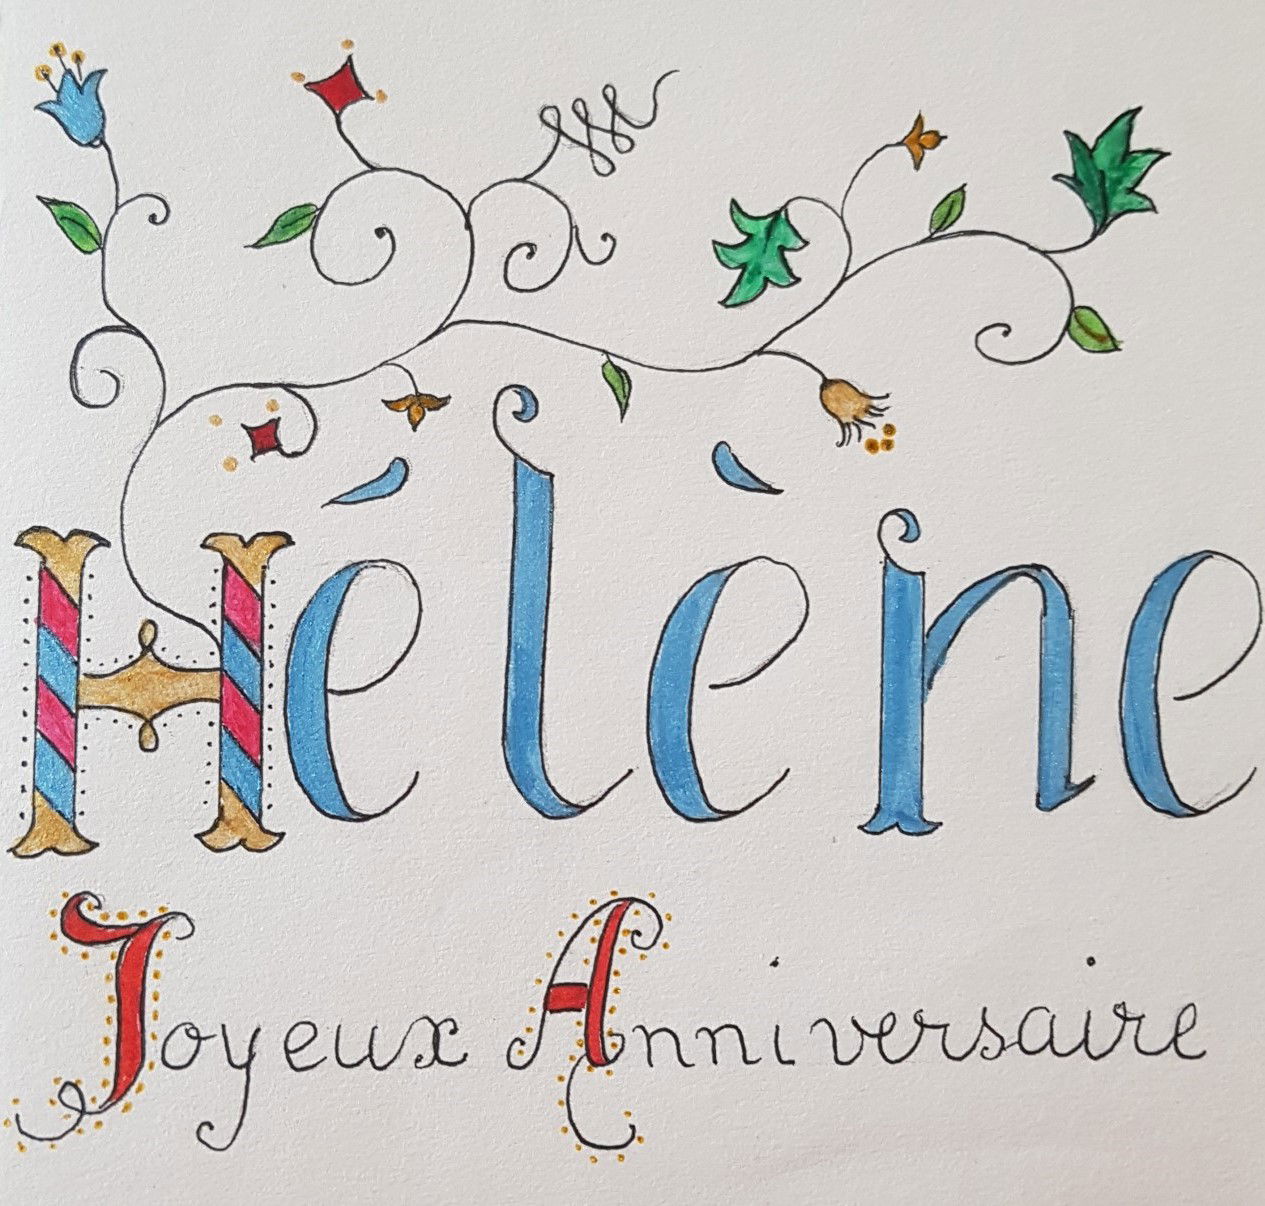 Hélène
Joyeux Anniversaire